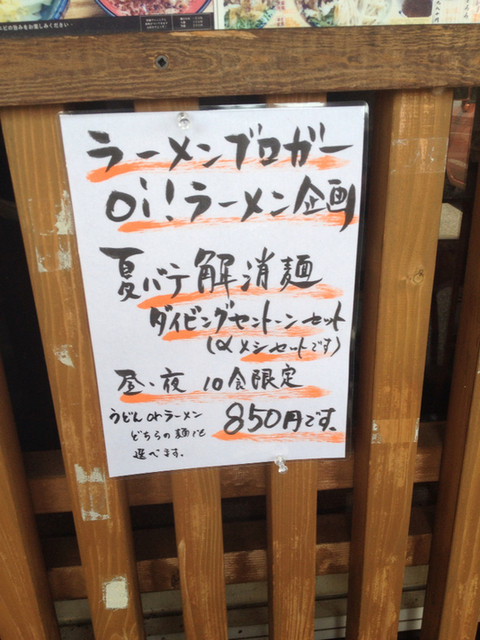 ラーメンブロガー
oi!ラーメン企画
夏バテ解消麺
ダイビングセントーンセット
(〆メシセットです)
昼・夜 10食限定
うどんorラーメン
どちらの麺でも
選べます。
850円です。